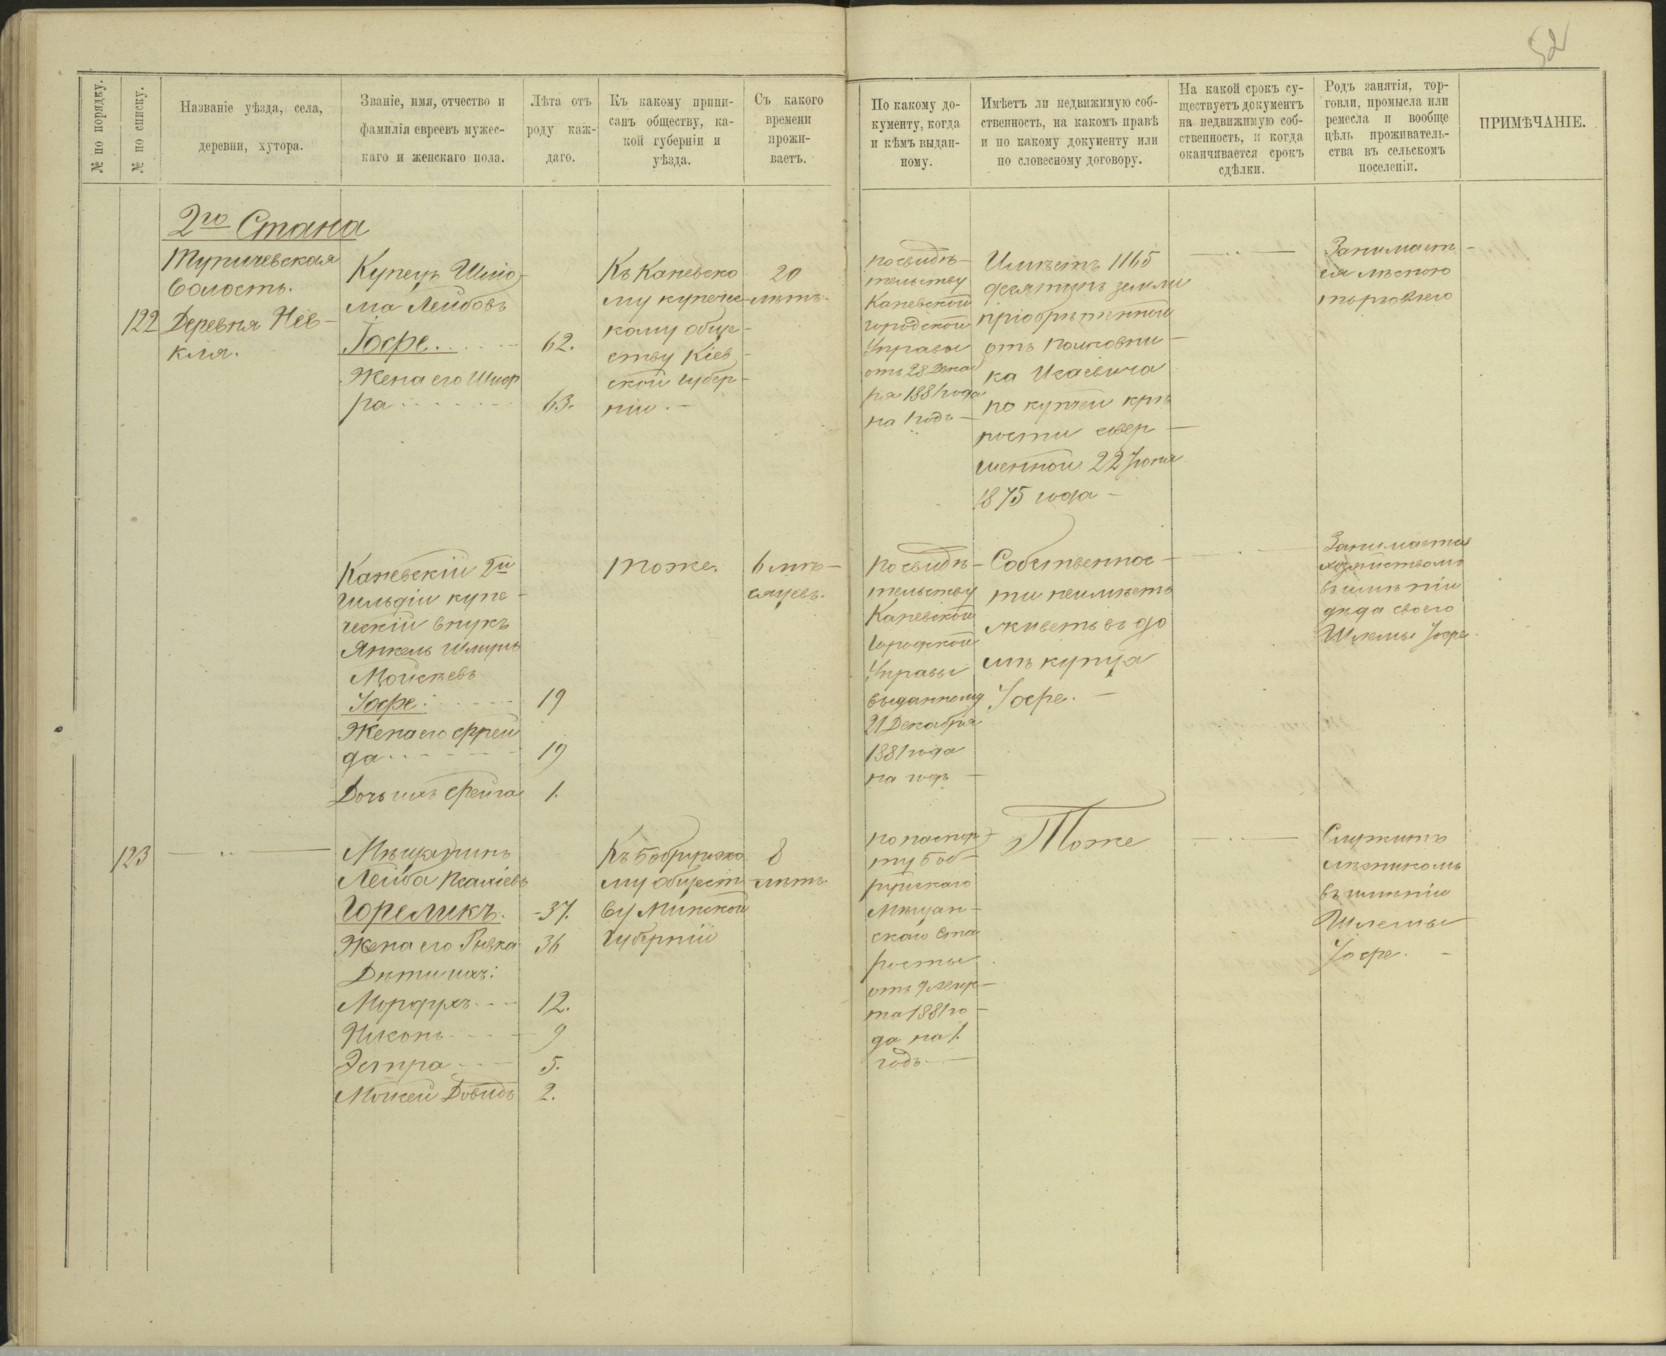 52
№ по порядку.
№ по списку.
Названіе уѣзда, села,
деревни, хутора.
Званіе, имя, отчество и
фамилія евреевъ мужес-
каго и женскаго пола.
Лѣта отъ
роду каж-
даго.
Къ какому припи-
санъ обществу, ка-
кой губерніи и
уѣзда.
Съ какого
времени
прожи-
ваетъ.
По какому до-
кументу, когда
и кѣмъ выдан-
ному.
Имѣетъ ли недвижимую соб-
ственность, на какомъ правѣ
и по какому документу или
по словесному договору.
На какой срокъ су-
ществуетъ документъ
на недвижимую соб-
ственность, и когда
оканчивается срокъ
сдѣлки.
Родъ занятія, тор-
говли, промысла или
ремесла и вообще
цѣль проживатель-
ства въ сельскомъ
поселеніи.
ПРИМѢЧАНІЕ.
2го Стана
Тупичевская
волость.
122
Деревня Нев-
кля.
Купецъ Шлио-
ма Лейбовъ
Іофе. 62.
Жена его Шиф
ра 63.
Къ Каневско
му купече-
кому обще-
ству Кіев-
ской губер-
ніи.
20
лѣтъ.
по свидѣ-
тельству
Каневской
городской
Управы
отъ 28 Дека
ря 1881 года
на 1 годъ
Имѣетъ 1165
десятинъ земли
пріобрѣтенной
отъ полковни-
ка Исаевича
по купчей крѣ
пости совер-
шенной 22 Іюня
1875 года
Занимает-
ся лѣсною
торговлею
Каневскій 2й
гильдіи купе-
ческій внукъ
Янкель Шлиома
Мойсѣевъ
Іофе. 19
Жена его Фрей
да 19
Дочь ихъ Фейга 1.
Тоже.
6 мѣ-
сяцевъ.
По свидѣ-
тельству
Каневской
Городской
Управы
выданному
21 Декабря
1881 года
на годъ
Собственнос-
ти неимѣетъ
живетъ въ до
мѣ купца
Іофе.
Занимается
хозяйствомъ
въ имѣніи
дѣда своего
Шлемы Іофе.
123
Мѣщанинъ
Лейба Псаліевъ
Гореликъ. 37.
Жена его Ривка 36
Дѣти ихъ:
Мордухъ 12.
Нисонъ 9
Эстра 5.
Мойсей Довидъ 2.
Къ Бобруйско
му общест
ву Минской
Губерніи
8
лѣтъ
по паспор-
ту Боб-
руйскаго
Мѣщан-
скаго Ста
росты
отъ 9 Мар-
та 1881 го-
да на 1.
годъ.
Тоже
Служитъ
лѣсникомъ
въ имѣніи
Шлемы
Іофе.